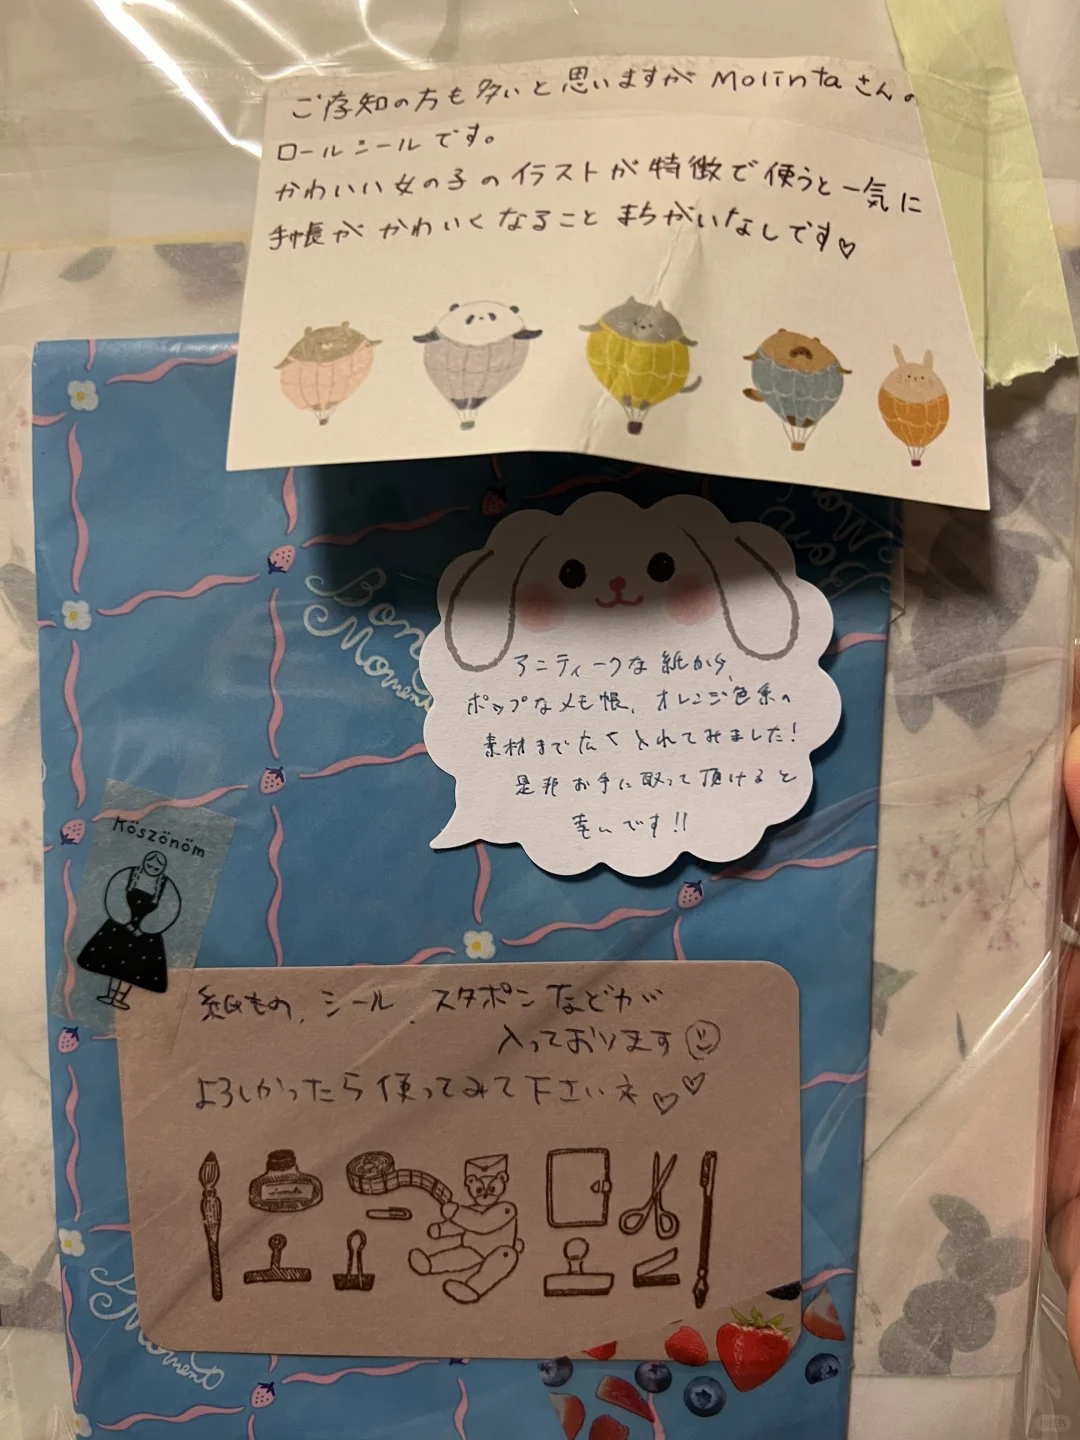 ご存知の方も多いと思いますが Molintaさんの
ロールシールです。
かわいい女の子のイラストが特徴で使うと一気に
手帳がかわいくなることまちがいなしです♡
Bon
Moment
アンティークな紙から、
ポップなメモ帳、オレンジ色系の
素材まで広く入れてみました!
是非お手に取って頂けると
幸いです!!
Köszönöm
紙もの、シール、スタポンなどが
入っております
よろしかったら使ってみて下さいネ♡♡
Moment